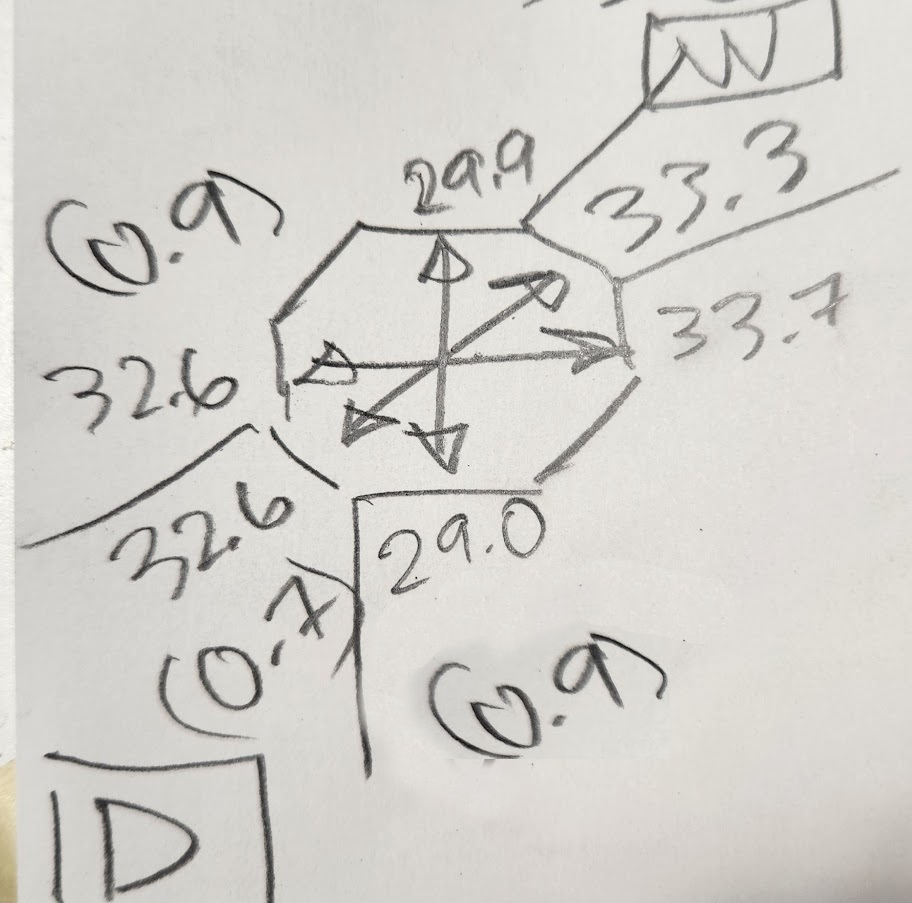 W
29.9
33.3
(0.9)
33.7
32.6
32.6
29.0
(0.7)
(0.9)
D